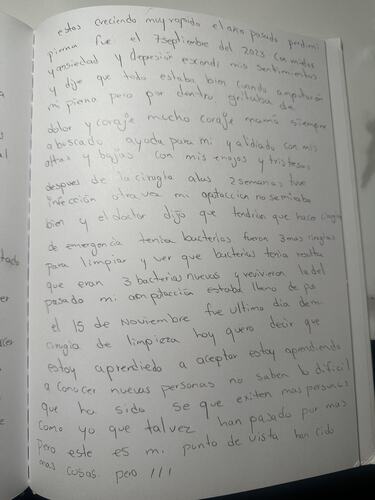 estas creciendo muy rapido el año pasado perdí mi
pierna fue el 7septiembre del 2023 con miedos
y ansiedad y depresión escondí mis sentimientos
y dije que todo estaba bien cuando amputaron
mi pierna pero por dentro gritaba de
dolor y coraje mucho coraje mamá siempre
a buscado ayuda para mi y a lidiado con mis
altas y bajas con mis enojos y tristesas
despues de la cirugia alas 2 semanas tuve
infección otra vez mi apotaccion no se miraba
bien y el doctor dijo que tendrian que hacer cirugia
de emergencia tenia bacterias fueron 3 mas cirugias
para limpiar y ver que bacterias tenia resulta
que eran 3 bacterias nuevas y revivieron la del
pasado mi aonpotacción estaba lleno de pus
el 15 de Noviembre fue ultimo dia de mi
cirugia de limpieza hoy quero decir que
estoy aprendiedo a aceptar estoy aprendiendo
a conocer nuevas personas no saben lo dificil
que ha sido se que exiten mas personas
como yo que tal vez han pasado por mas
pero este es mi punto de vista han cido
mas cosas pero !!!